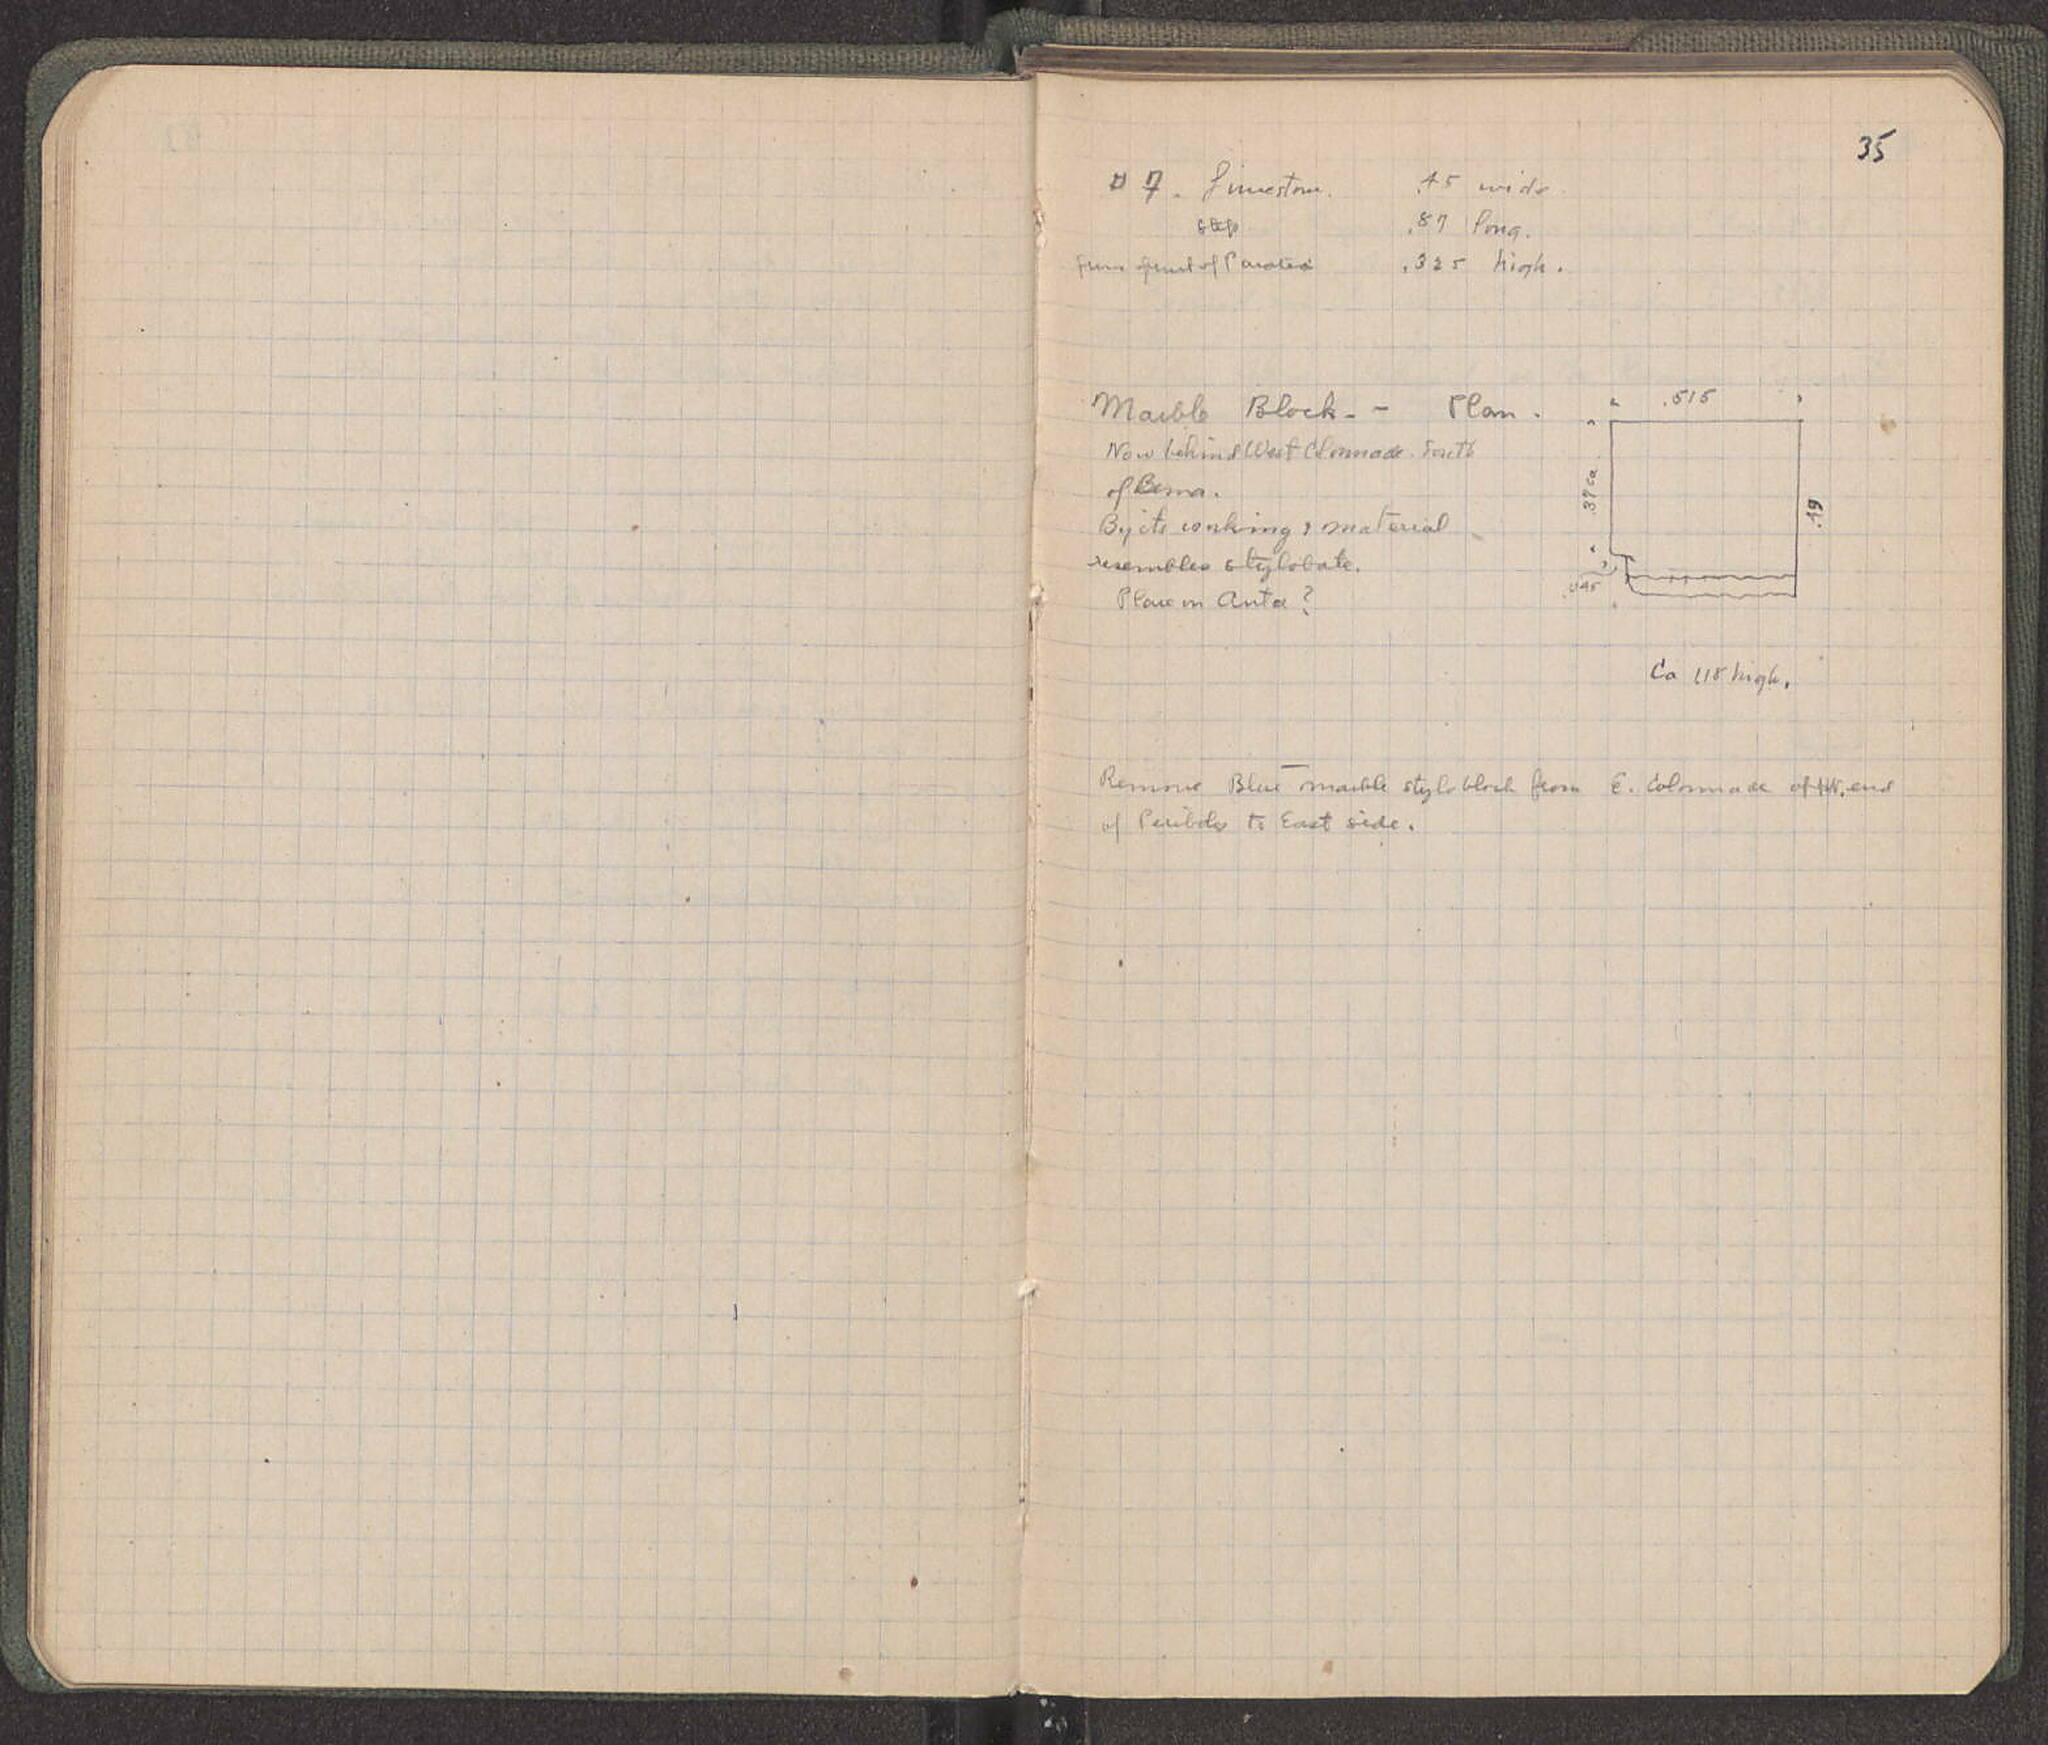 35
# 7. Limestone. .45 wide
step .87 long.
from front of .325 high.
Marble Block - - Plan.
Now behind West Colonnade. South
of Bema.
By its working & material
resembles stylobate.
Place in Anta?
.515
.39 ca
.49
.045
Ca .118 high.
Remove Blue marble stylo block from E. Colonnade of end
of Peribolos to East side.